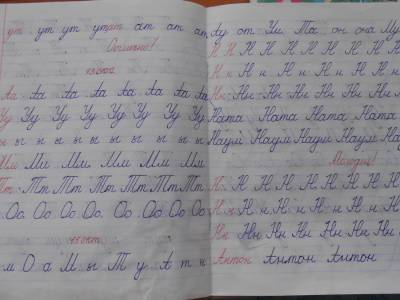 ут ут ут ут ут ат ат ат ат
Отлично!
Аа Аа Аа Аа Аа Аа Аа
Уу Уу Уу Уу Уу Уу Уу
ы ы ы ы ы ы ы ы ы ы ы
Мм Мм Мм Мм Мм Мм
Тт Тт Тт Тт Тт Тт Тт
Оо. Оо Оо Оо. Оо. Оо. Оо. Оо.
м О а М ы Т у А т н
Ау от Ум Та он она Му
Н Н Н Н Н Н Н Н Н Н
Н н Н н Н н Н н Н н
Нн Нн Нн Нн Нн Нн Нн
Ната Ната Ната Ната
Наум Наум Наум Наум Наум
Молодец!
Н Н Н Н Н Н Н Н Н Н
Н н Н н Н н Н н Н н
Нн Нн Нн Нн Нн Нн Нн
Антон Антон Антон